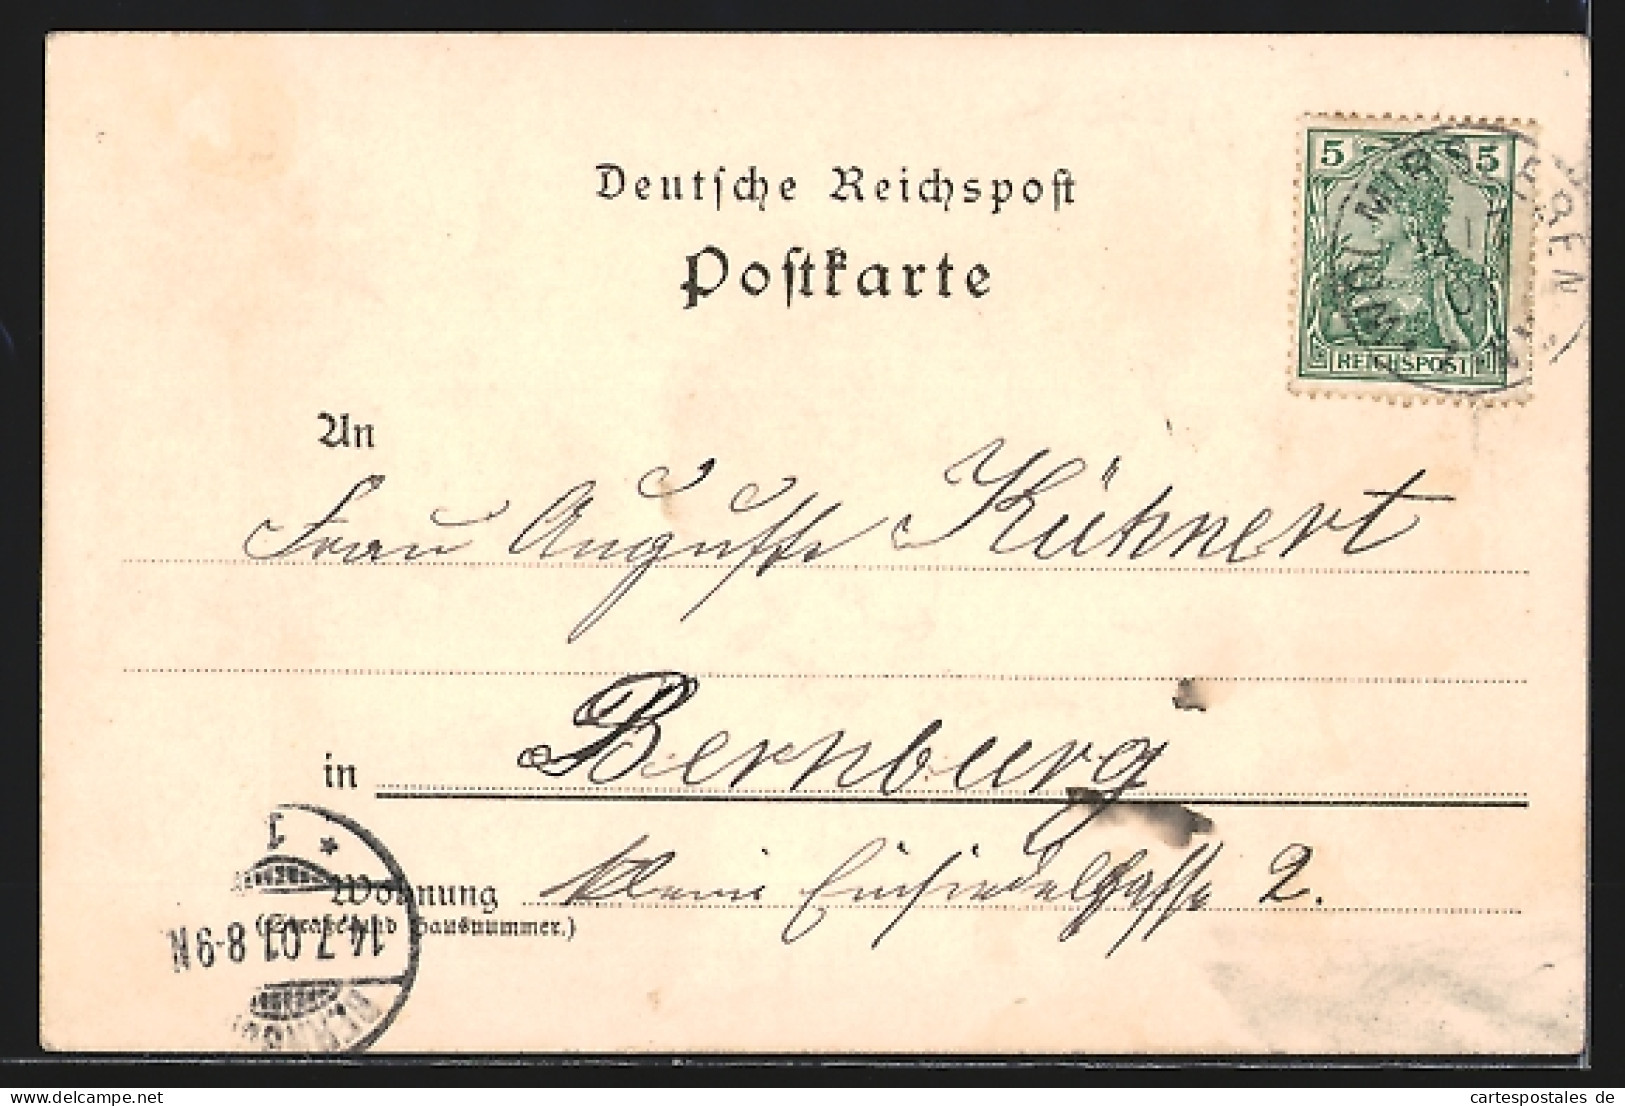 Deutsche Reichspost
Postkarte
5 5
REICHSPOST
WOLMIRSLEBEN
An
Frau Auguste Kühnert
in Bernburg
Wohnung kleine Einsiedelgasse 2.
(Straße und Hausnummer.)
1
14.7.01 8-9N
BERNBURG
cartespostales de